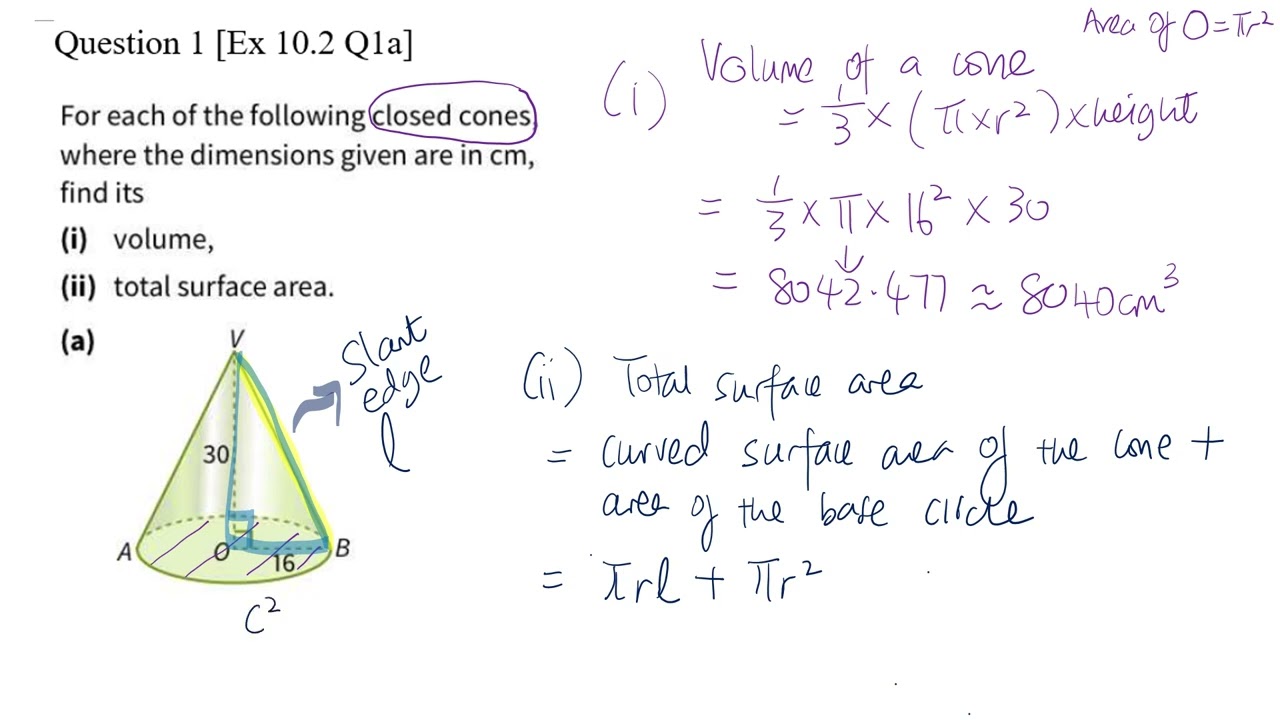 Question 1 [Ex 10.2 Q1a]
For each of the following closed cones,
where the dimensions given are in cm,
find its
(i) volume,
(ii) total surface area.
(a)
V
30
A
O
16
B
C²
Slant
edge
l
Area of O = πr²
(i) Volume of a cone
= 1/3 × (π×r²) × height
= 1/3 × π × 16² × 30
= 8042.477 ≈ 8040cm³
(ii) Total surface area
= curved surface area of the cone +
area of the base circle
= πrl + πr²